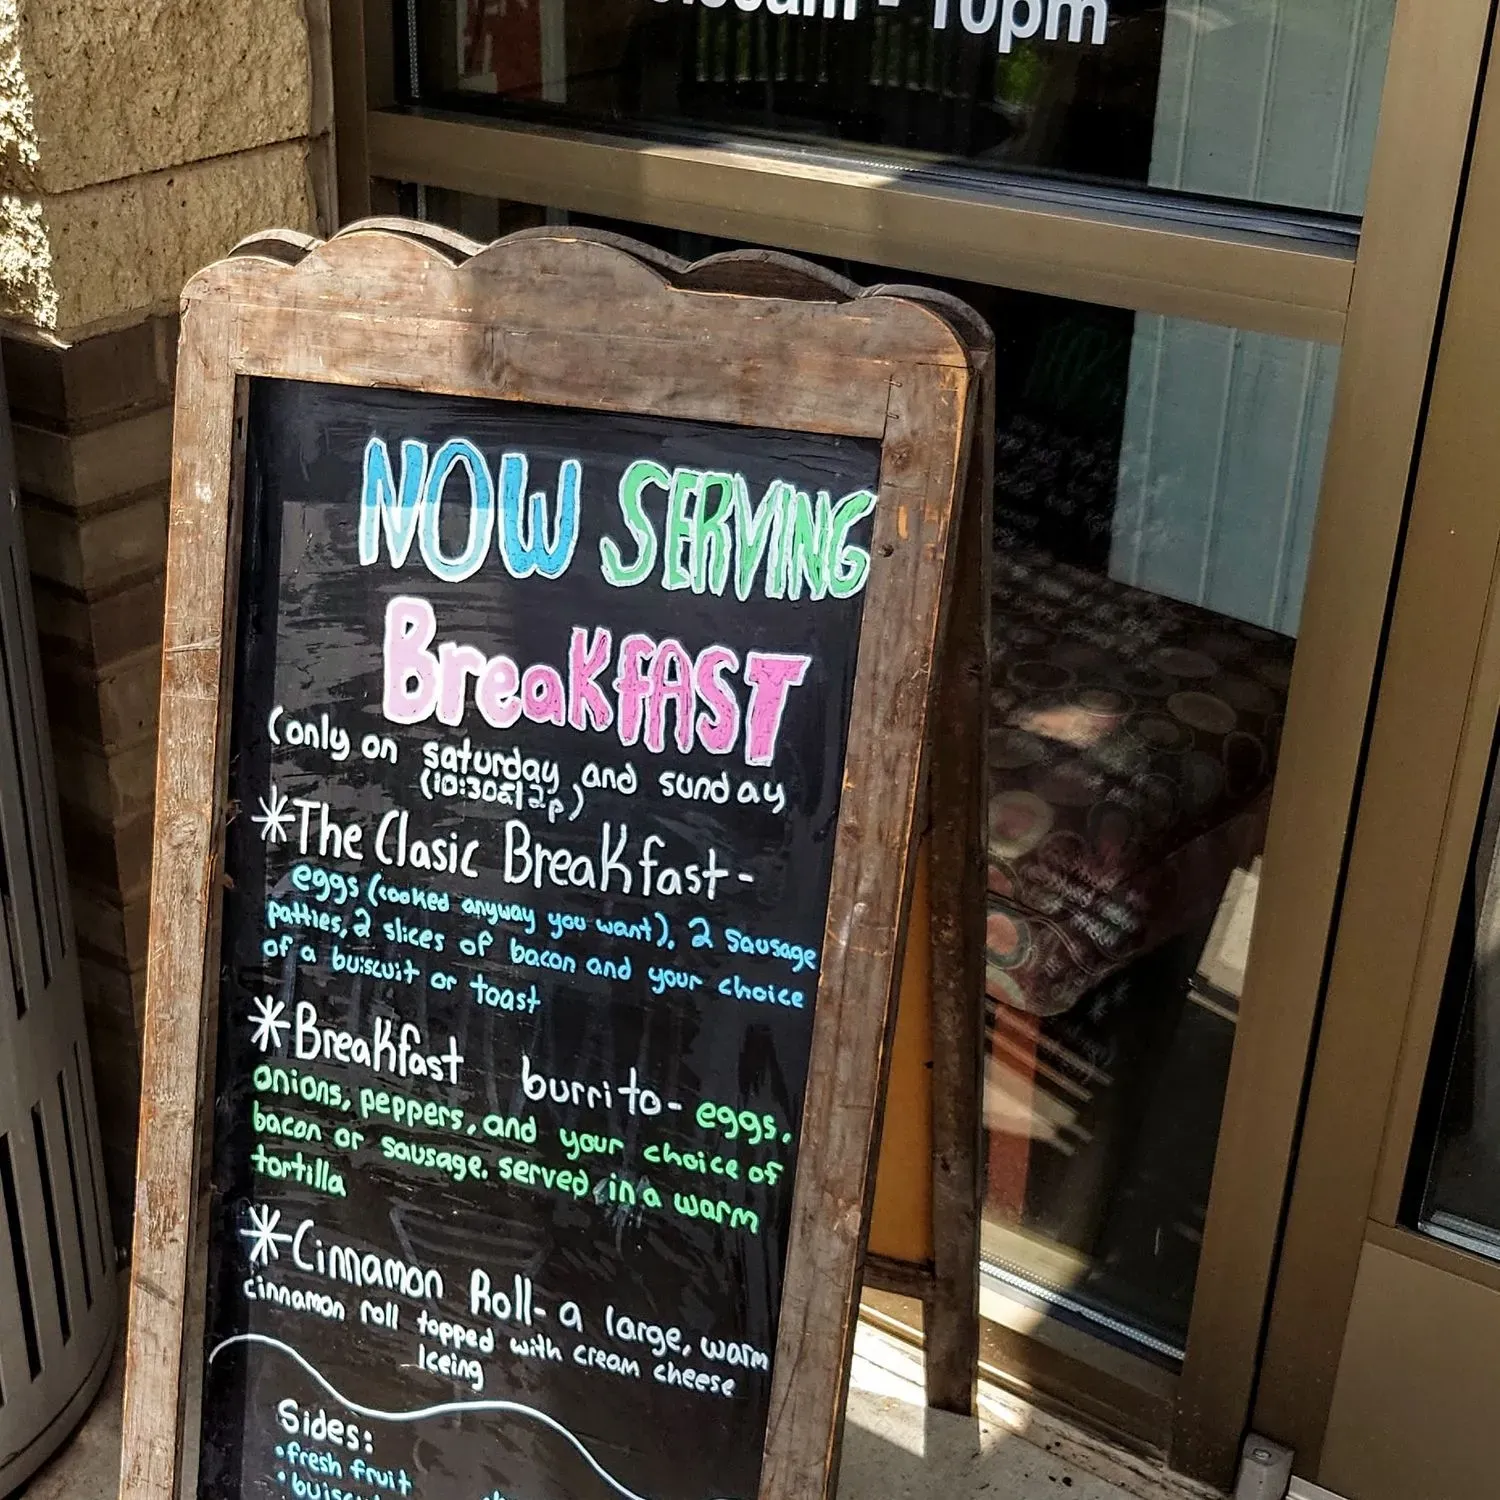 - 10pm
NOW SERVING
BreaKFAST
(only on saturday and sunday
(10:30a|2p)
*The Clasic BreaKfast-
eggs (cooked anyway you want), 2 sausage
patties, 2 slices of bacon and your choice
of a buiscuit or toast
*BreaKfast burrito- eggs,
onions, peppers, and your choice of
bacon or sausage. served in a warm
tortilla
*Cinnamon Roll- a large, warm
cinnamon roll topped with cream cheese
Iceing
Sides:
•fresh fruit